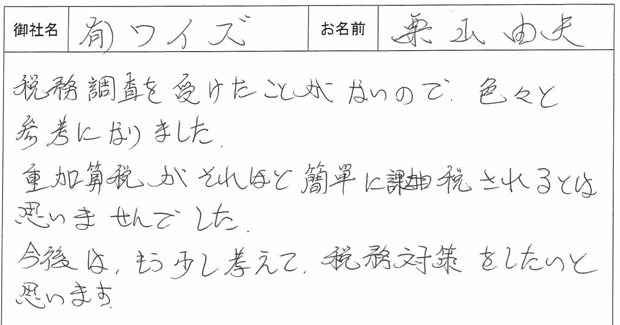 御社名 (有)ワイズ お名前 栗山由夫
税務調査を受けたことがないので、色々と
参考になりました。
重加算税がそれほど簡単に課税されるとは
思いませんでした。
今後は、もう少し考えて、税務対策をしたいと
思います。